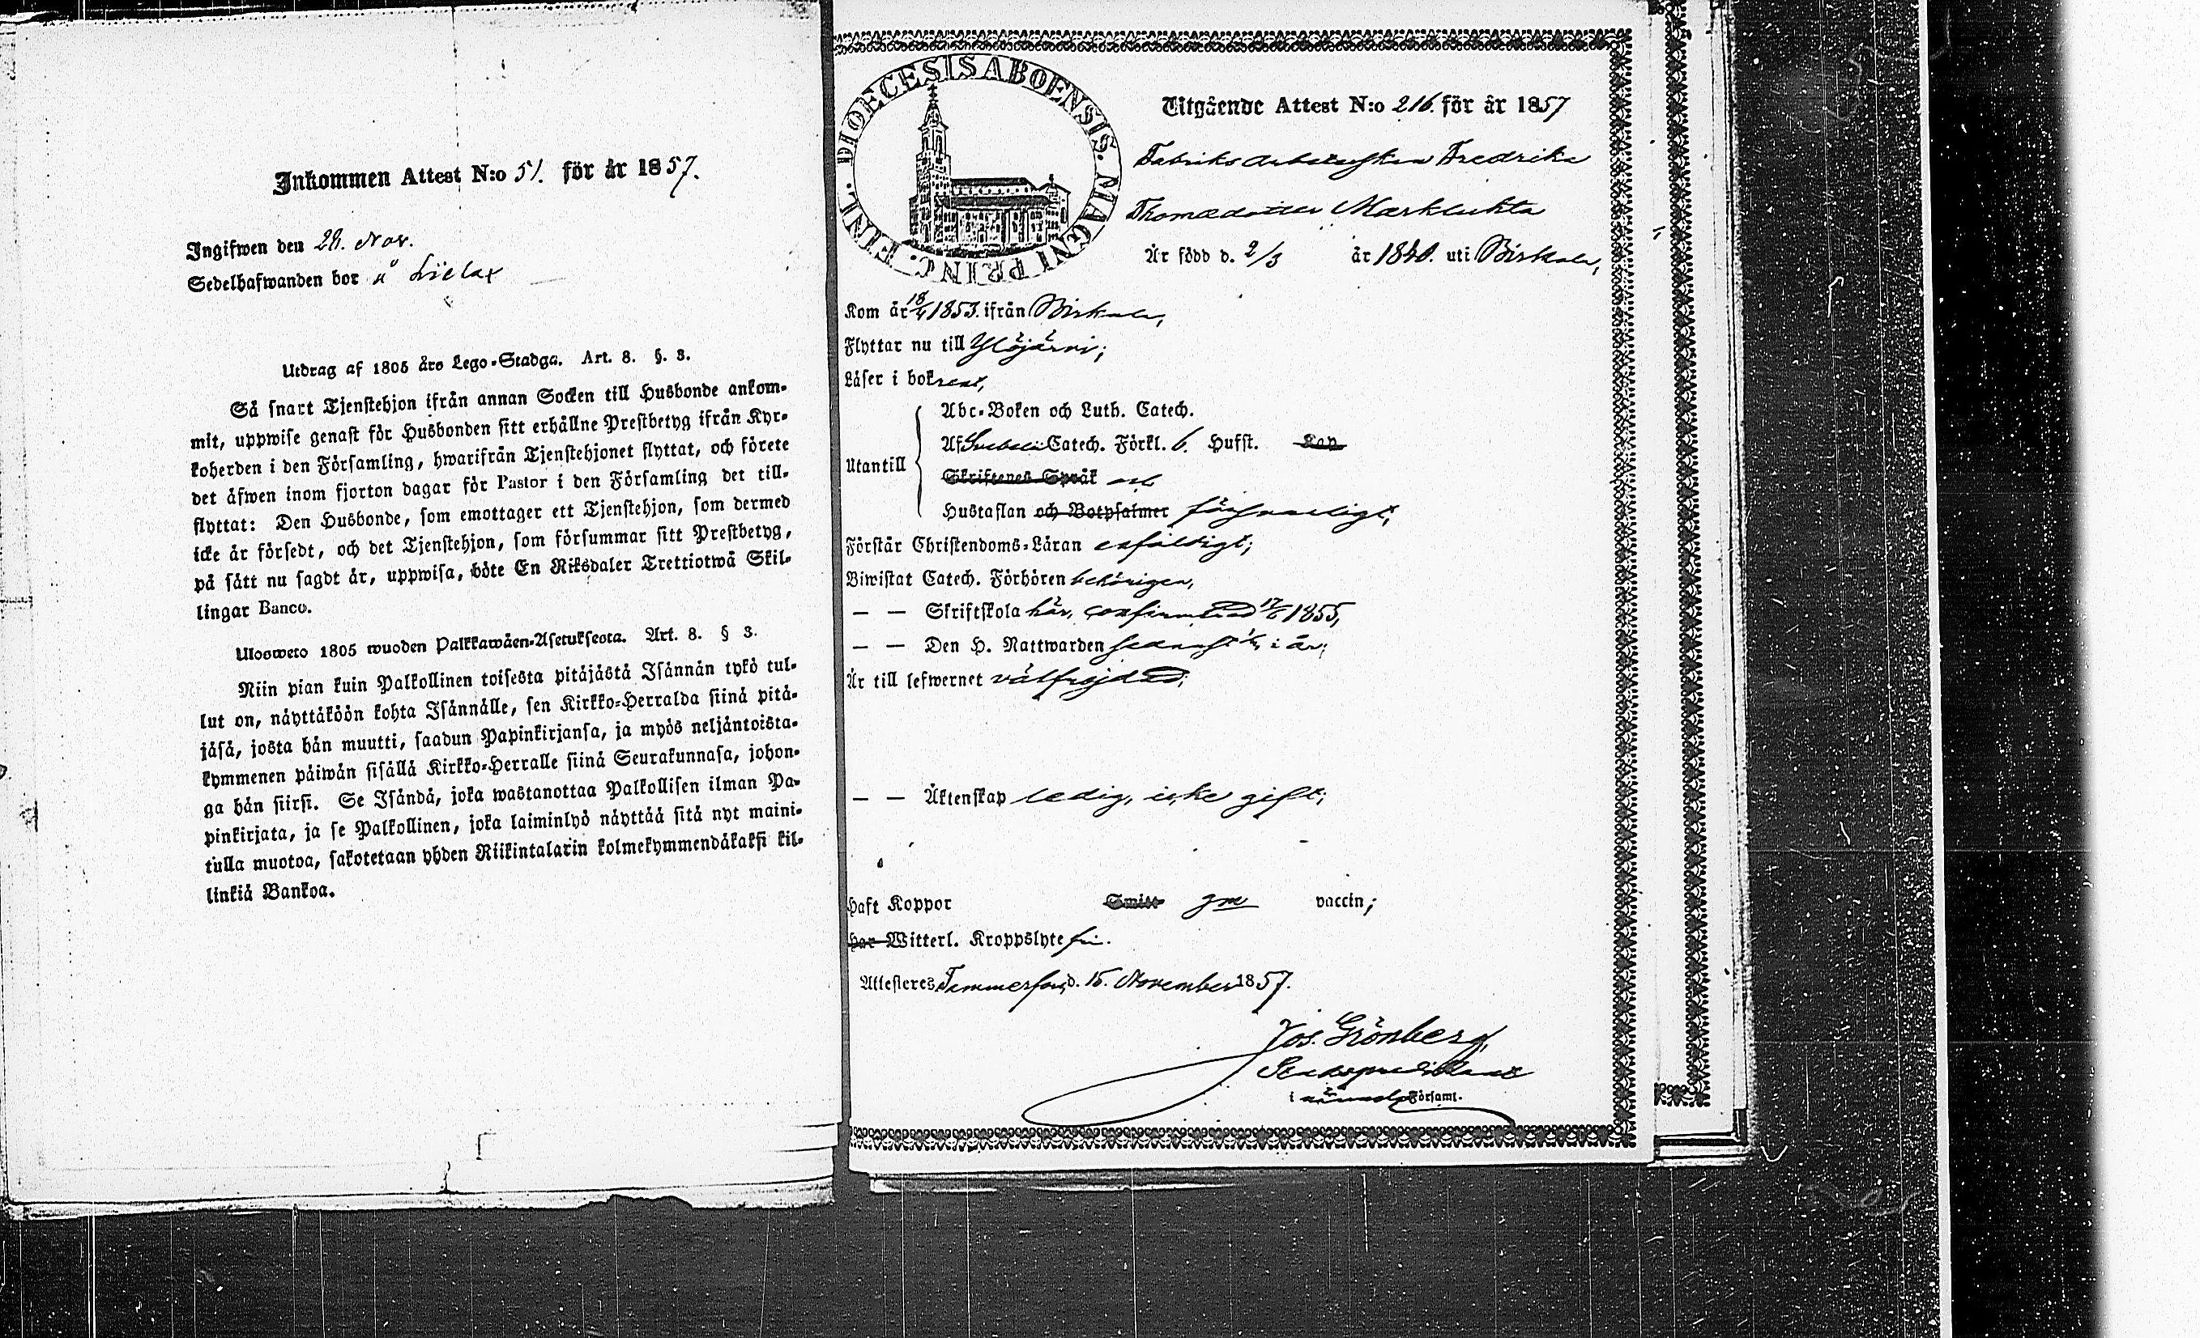 Inkommen Attest N:o 51. för år 1857.
Ingifwen den 28. Nov.
Sedelhafwanden bor å Lielax
Utdrag af 1805 års Lego-Stadga. Art. 8. §. 3.
Så snart Tjenstehjon ifrån annan Socken till Husbonde ankom-
mit, uppwise genast för Husbonden sitt erhållne Prestbetyg ifrån Kyr-
koherden i den Församling, hwarifrån Tjenstehjonet flyttat, och förete
det äfwen inom fjorton dagar för Pastor i den Församling det till-
flyttat: Den Husbonde, som emottager ett Tjenstehjon, som dermed
icke är försedt, och det Tjenstehjon, som försummar sitt Prestbetyg,
på sätt nu sagdt är, uppwisa, böte En Riksdaler Trettiotwå Skil-
lingar Banco.
Uloswеto 1805 wuoden Palkkawäen-Asetuksesta. Art. 8. § 3.
Niin pian kuin Palkollinen toisesta pitäjästä Isännän tykö tul-
lut on, näyttäköön kohta Isännälle, sen Kirkko-Herralda siinä pitä-
jäsä, josta hän muutti, saadun Papinkirjansa, ja myös neljäntoista-
kymmenen päiwän sisällä Kirkko-Herralle siinä Seurakunnasa, johon-
ga hän siirsi. Se Isändä, joka wastanottaa Palkollisen ilman Pa-
pinkirjata, ja se Palkollinen, joka laiminlyö näyttää sitä nyt maini-
tulla muotoa, sakotetaan yhden Riikintalarin kolmekymmendäkaksi kil-
linkiä Bankoa.
DIOECESIS ABOENSIS. MAGNI PRINC. FINL.
Utgående Attest N:o 216. för år 1857
Fabriks arbeterskan Fredrika
Thomædotter Marklukta
Är född d. 2/3 år 1840. uti Birkala,
Kom år 18/4 1853. ifrån Birkala,
Flyttar nu till Ylöjärvi;
Läser i bok rent,
Utantill
Abc-Boken och Luth. Catech.
Af Svebelii Catech. Förkl. 6. Hufst. Kap
Skriftenes Språk och
Hustaflan och Botpsalmer försvarligt,
Förstår Christendoms-Läran enfaldigt;
Biwistat Catech. Förhören behörigen,
— — Skriftskola här, confirmerad 17/6 1855,
— — Den H. Nattwarden senast i år;
Är till lefwernet välfrejdad;
— — Äktenskap ledig, icke gift;
Haft Koppor Smitt gm vaccin;
har Witterl. Kroppslyte fri.
Attesteres Tammerfors, d. 15. November 1857.
Jos. Grönberg,
Stadspredikant
i nämnde Församl.